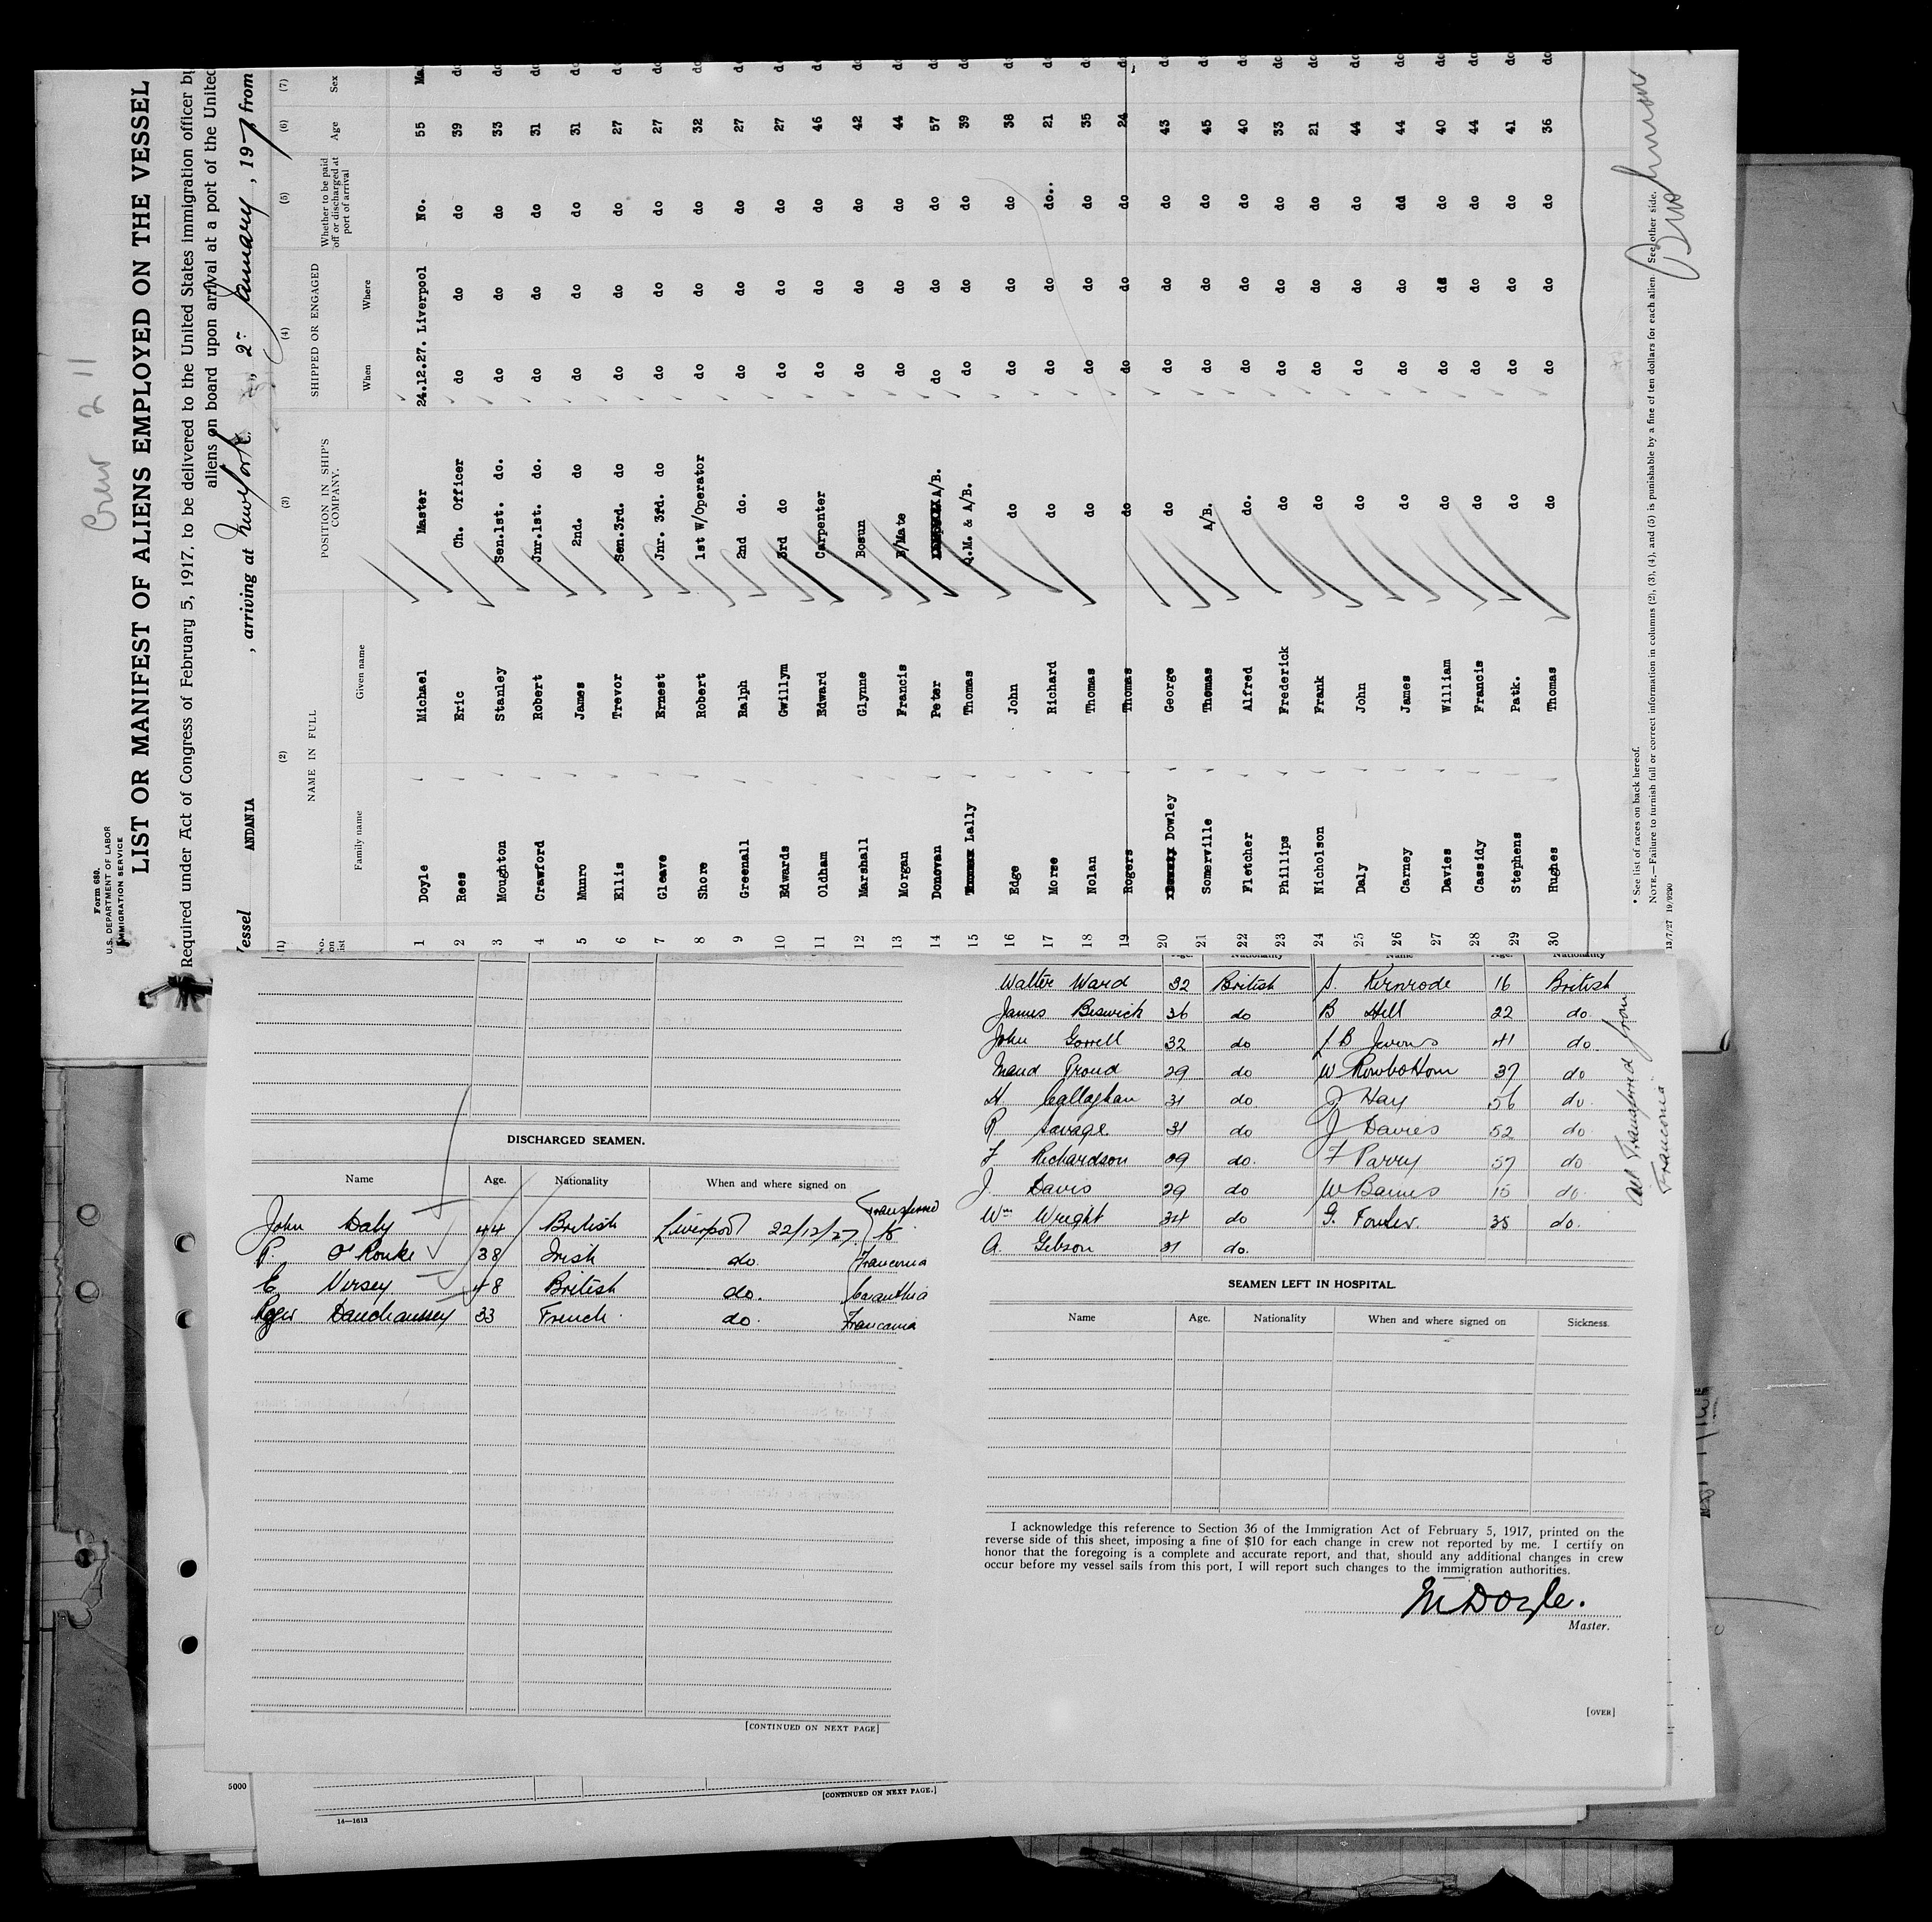 Crew 211
Form 680.
U.S. DEPARTMENT OF LABOR
IMMIGRATION SERVICE
LIST OR MANIFEST OF ALIENS EMPLOYED ON THE VESSEL
Required under Act of Congress of February 5, 1917, to be delivered to the United States immigration officer by
aliens on board upon arrival at a port of the United
Vessel ANDANIA, arriving at New York 2nd January, 19 from
(1) (2) (3) (4) (5) (6) (7)
No. on list NAME IN FULL POSITION IN SHIP'S COMPANY. SHIPPED OR ENGAGED Whether to be paid off or discharged at port of arrival Age Sex
Family name Given name When Where
1 Doyle Michael Master 24.12.27. Liverpool No. 55 Mal
2 Rees Eric Ch. Officer do do do 39 do
3 Moughton Stanley Sen.1st. do. do do do 33 do
4 Crawford Robert Jnr.1st. do. do do do 31 do
5 Munro James 2nd. do do do do 31 do
6 Ellis Trevor Sen.3rd. do do do do 27 do
7 Gleave Ernest Jnr. 3rd. do do do do 27 do
8 Shore Robert 1st W/Operator do do do 32 do
9 Greenall Ralph 2nd do. do do do 27 do
10 Edwards Gwillym 3rd do do do do 27 do
11 Oldham Edward Carpenter do do do 46 do
12 Marshall Glynne Bosun do do do 42 do
13 Morgan Francis B/Mate do do do 44 do
14 Donovan Peter A/B. do do do 57 do
15 Lally Thomas Q.M. & A/B. do do do 39 do
16 Edge John do do do do 38 do
17 Morse Richard do do do do.. 21 do
18 Nolan Thomas do do do do 35 do
19 Rogers Thomas do do do do 24 do
20 Dowley George do do do do 43 do
21 Somerville Thomas A/B. do do do 45 do
22 Fletcher Alfred do. do do do 40 do
23 Phillips Frederick do do do do 33 do
24 Nicholson Frank do do do do 21 do
25 Daly John do do do do 44 do
26 Carney James do do do dd 44 do
27 Davies William do do do do 40 do
28 Cassidy Francis do do do do 44 do
29 Stephens Patk. do do do do 41 do
30 Hughes Thomas do do do do 36 do
* See list of races on back hereof.
NOTE.—Failure to furnish full or correct information in columns (2), (3), (4), and (5) is punishable by a fine of ten dollars for each alien. See other side.
13/7/27 19/9290
DISCHARGED SEAMEN.
Name Age. Nationality When and where signed on
John Daly 44 British Liverpool 22/12/27 Transferred to
P. O'Rourke 38 Irish do. Franconia
E. Versey 48 British do. Carinthia
Roger Dauchaussey 33 French. do. Franconia
[CONTINUED ON NEXT PAGE]
Age. Nationality Name Age. Nationality
Walter Ward 32 British S. Kernrode 16 British
James Beswick 36 do B Hill 22 do.
John Gorrell 32 do J B Jevons 41 do.
Maud Proud 29 do W Rowbottom 37 do
H. Callaghan 31 do. J Hay 56 do.
R Savage 31 do J Davies 52 do.
F Richardson 29 do. F Parry 57 do
J. Davis 29 do W Barnes 15 do.
Wm Wright 34 do G. Fowler. 35 do.
A. Gibson 31 do.
All Transferred from Franconia
SEAMEN LEFT IN HOSPITAL.
Name Age. Nationality When and where signed on Sickness.
I acknowledge this reference to Section 36 of the Immigration Act of February 5, 1917, printed on the
reverse side of this sheet, imposing a fine of $10 for each change in crew not reported by me. I certify on
honor that the foregoing is a complete and accurate report, and that, should any additional changes in crew
occur before my vessel sails from this port, I will report such changes to the immigration authorities.
M Doyle.
Master.
[OVER]
5000
[CONTINUED ON NEXT PAGE.]
14—1613